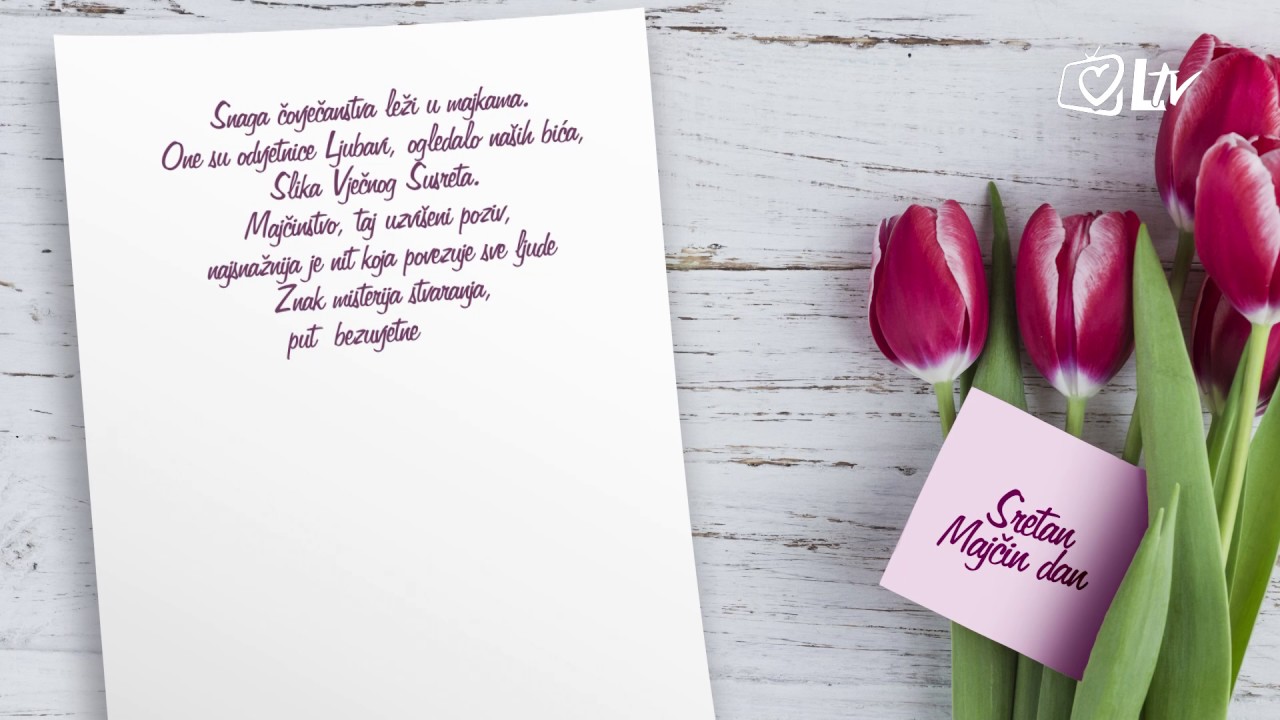 Snaga čovječanstva leži u majkama.
One su odvjetnice Ljubavi, ogledalo naših bića,
Slika Vječnog Susreta.
Majčinstvo, taj uzvišeni poziv,
najsnažnija je nit koja povezuje sve ljude
Znak misterija stvaranja,
put bezuvjetne
LTV
Sretan
Majčin dan